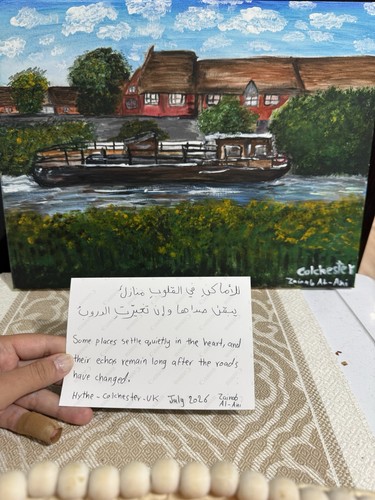 Colchester
Zainab Al-Ani
للأماكن في القلوب منازلٌ
يبقى صداها وإن تغيّرتِ الدروبُ
Some places settle quietly in the heart, and
their echoes remain long after the roads
have changed.
Hythe - Colchester - UK July 2026 Zainab
Al-Ani